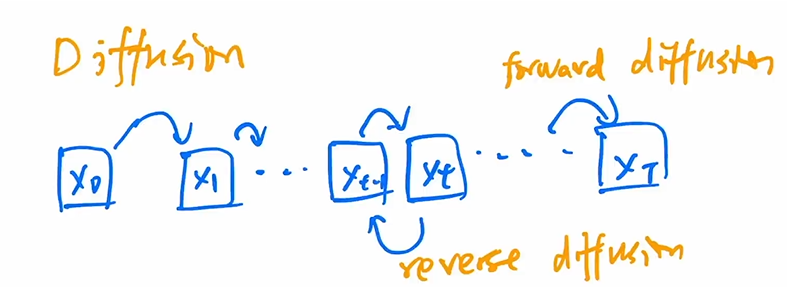 Diffusion
forward diffusion
X0 X1 ... Xt-1 Xt .... XT
reverse diffusion